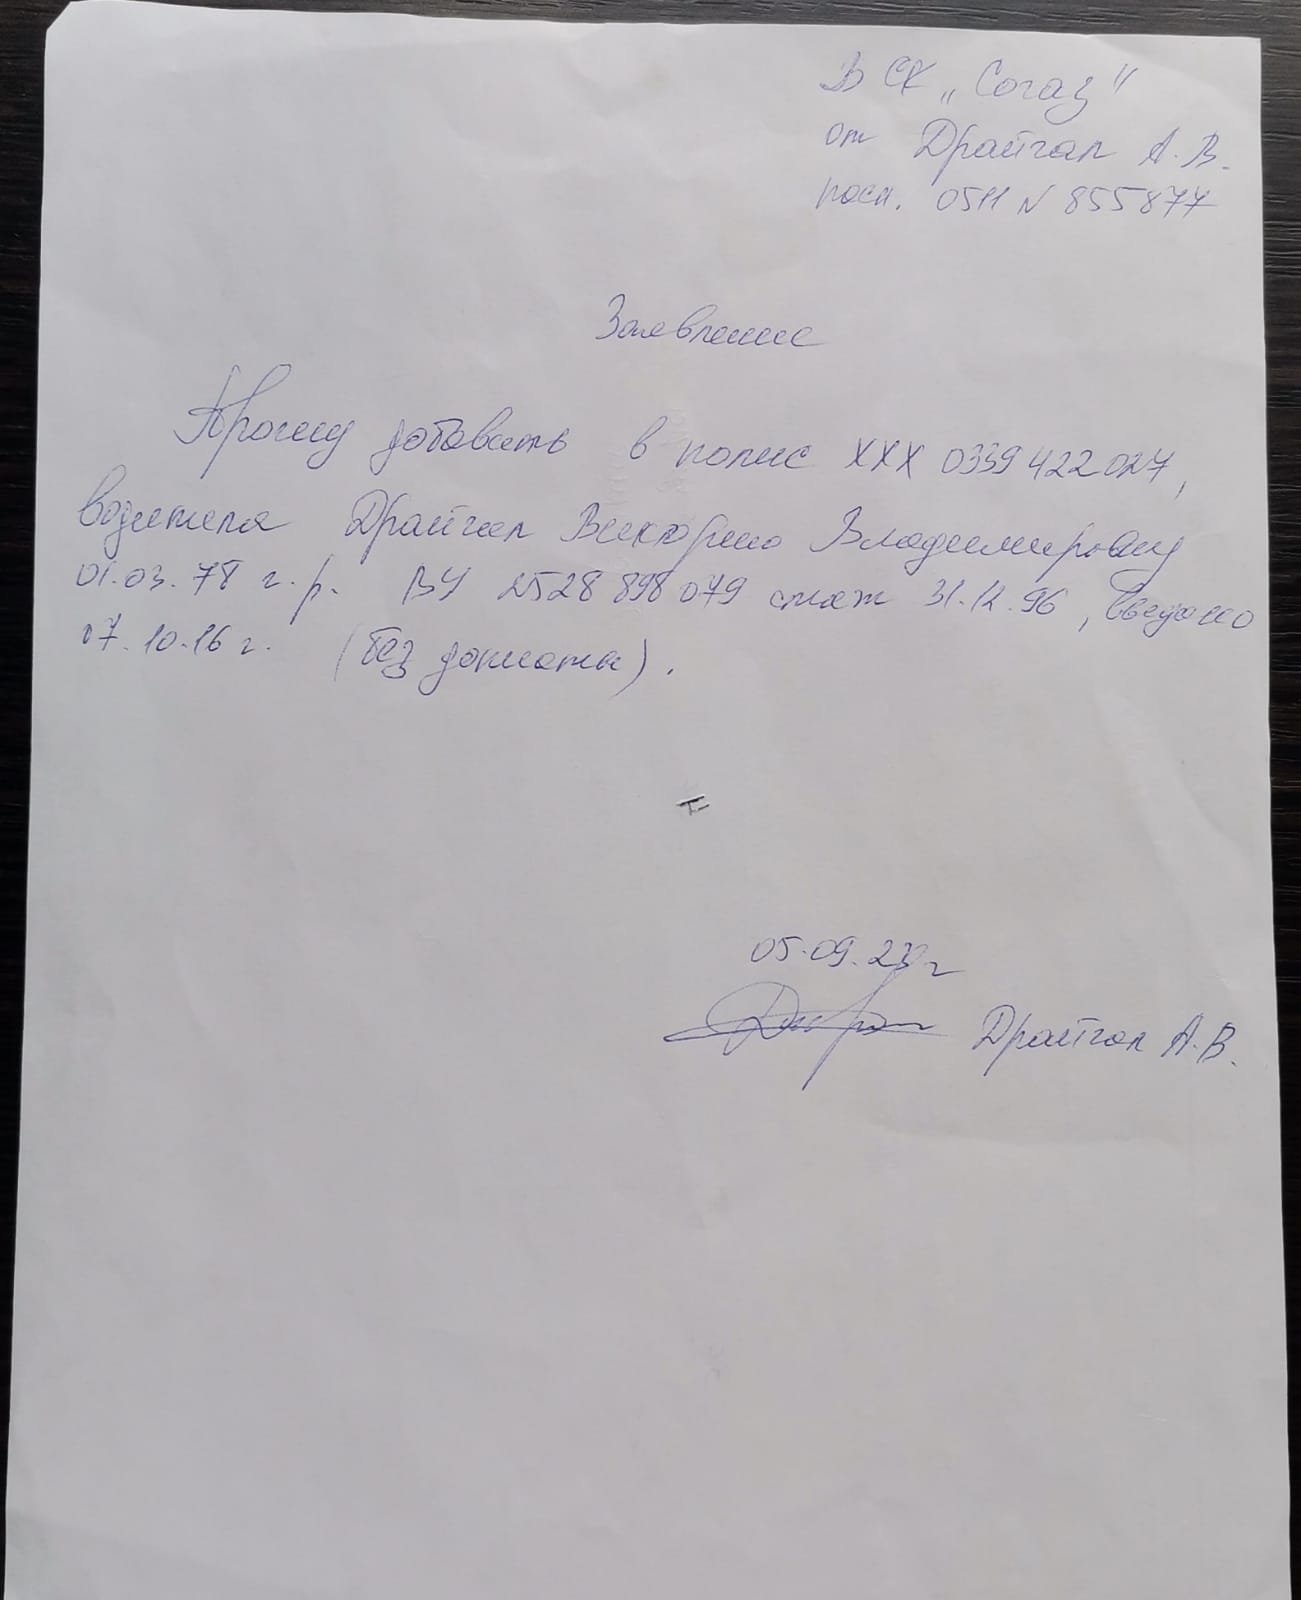 В СК „Согаз"
от Драйгал А.В.
посп. 0511 N 855877
Заявление
Прошу добавить в полис ХХХ 0339422027,
водителя Драйгал Викторию Владимировну
01.03.78 г.р. ВУ 2528 898 079 стаж 31.12.96,
07.10.16 г. (без доплаты).
05.09.23г
Драйгал А.В.